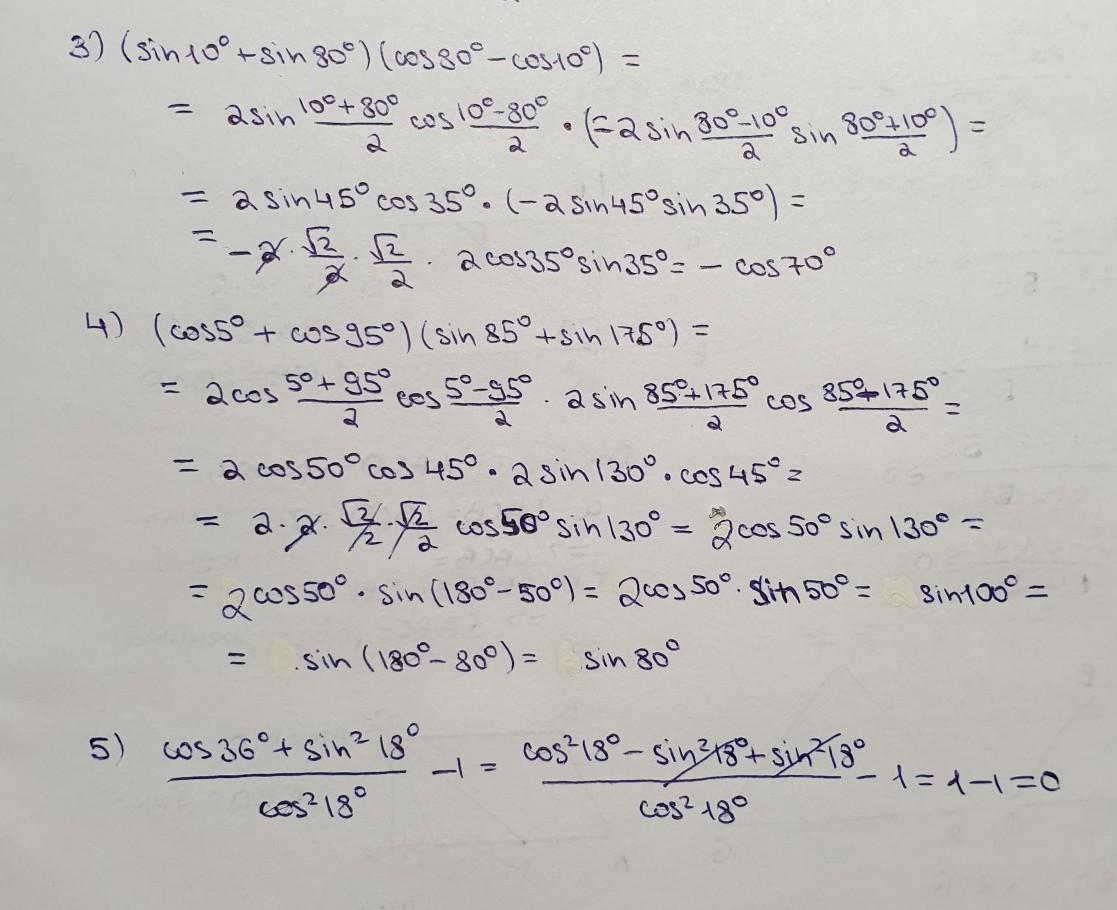 3) (sin10° + sin80°)(cos80° - cos10°) =
= 2sin (10°+80°)/2 cos (10°-80°)/2 · (-2sin (80°-10°)/2 sin (80°+10°)/2) =
= 2sin45°cos35° · (-2sin45°sin35°) =
= -2 · √2/2 · √2/2 · 2cos35°sin35° = - cos70°
4) (cos5° + cos95°)(sin85° + sin175°) =
= 2cos (5°+95°)/2 cos (5°-95°)/2 · 2sin (85°+175°)/2 cos (85°-175°)/2 =
= 2cos50°cos45° · 2sin130° · cos45° =
= 2 · 2 · √2/2 · √2/2 cos50°sin130° = 2cos50°sin130° =
= 2cos50° · sin(180°-50°) = 2cos50° · sin50° = sin100° =
= sin(180°-80°) = sin80°
5) (cos36° + sin²18°)/cos²18° - 1 = (cos²18° - sin²18° + sin²18°)/cos²18° - 1 = 1-1=0